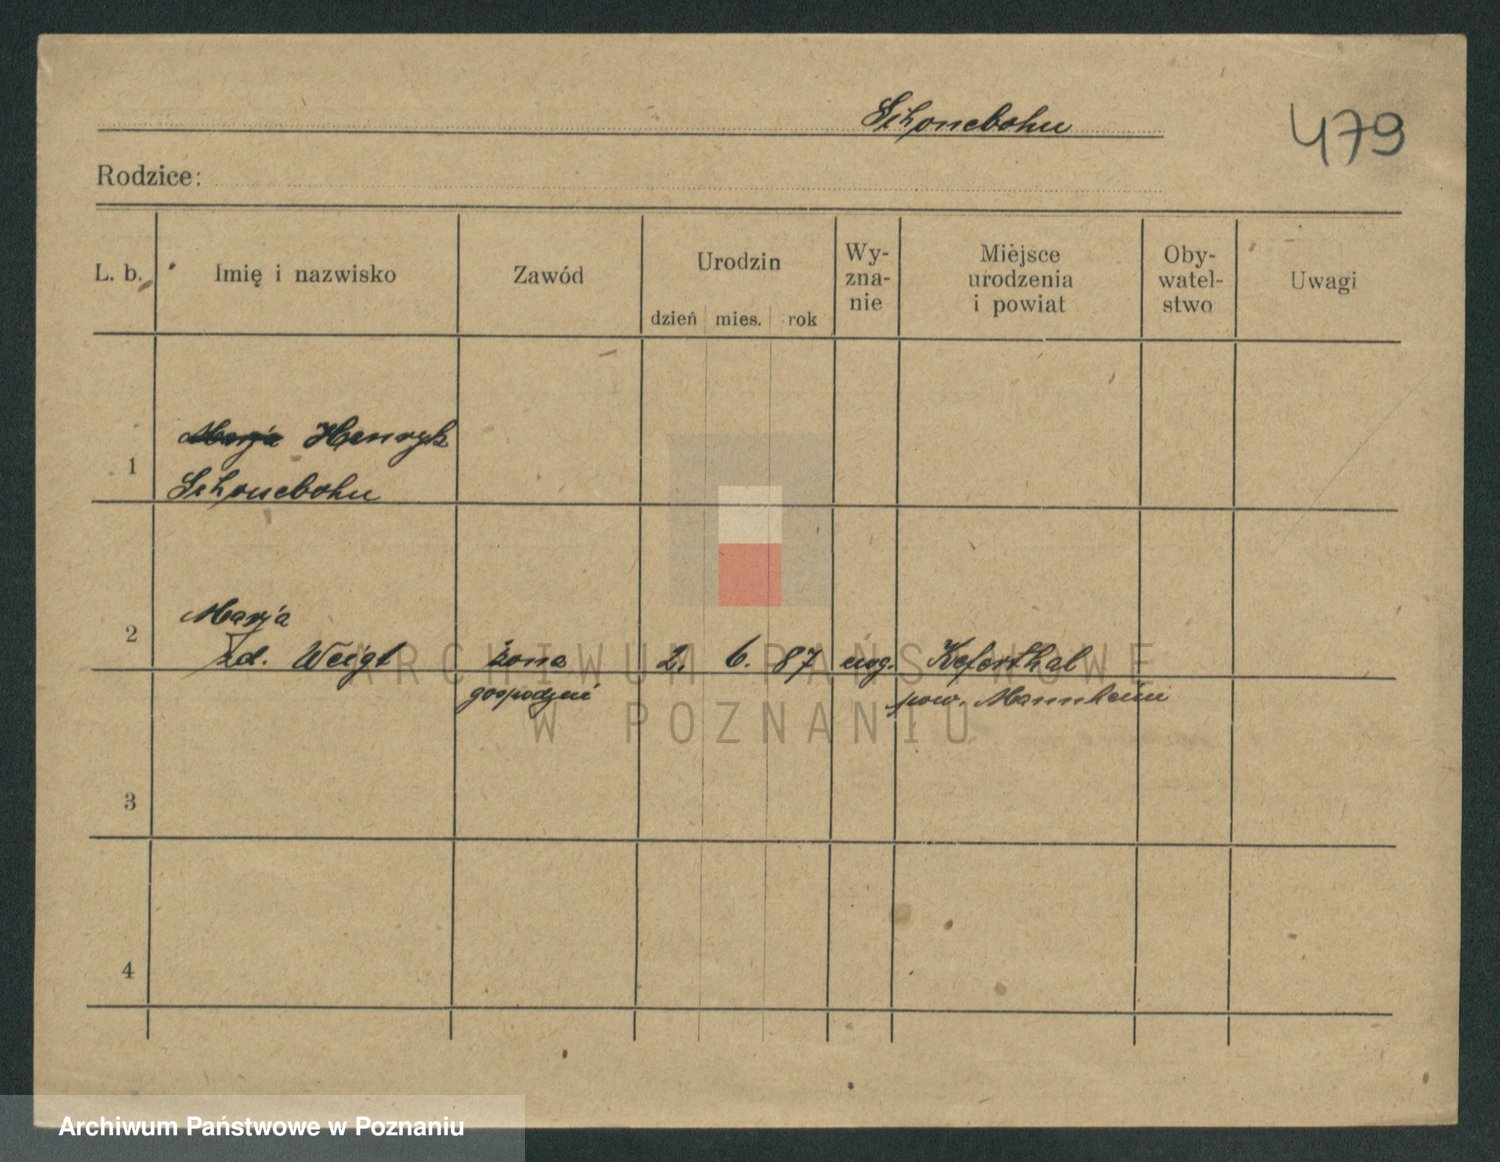 Schonebohn
479
Rodzice:
L. b. Imię i nazwisko Zawód Urodzin dzień mies. rok Wy-zna-nie Miejsce urodzenia i powiat Oby-watel-stwo Uwagi
Marja Henryk
1
Schonebohn
Marja
2
zd. Weigt żona 2. 6. 87 ewg. Keferthal
gospodyni pow. Mannheim
3
4
ARCHIWUM PAŃSTWOWE
W POZNANIU
Archiwum Państwowe w Poznaniu